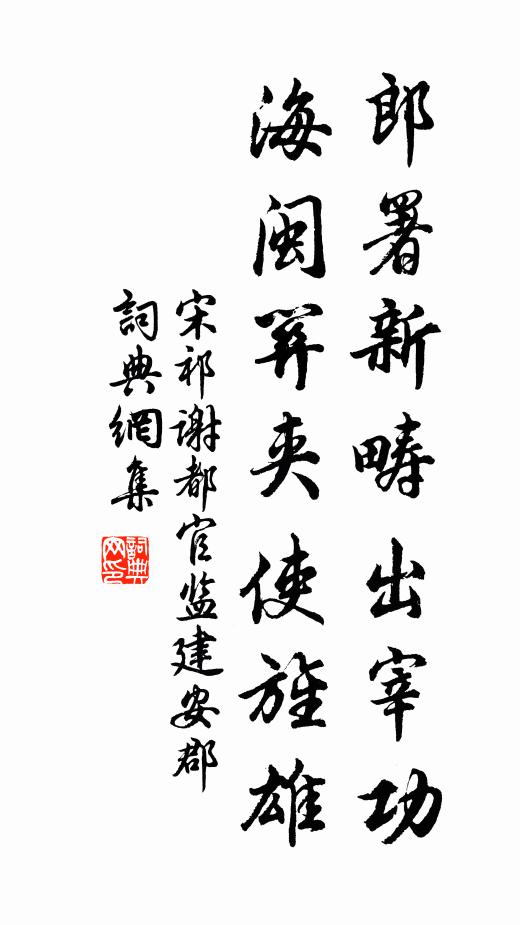 郎署新畴出宰功
海闽筭夹使旌雄
宋祁谢都官监建安郡
詞典網集
詞典網印